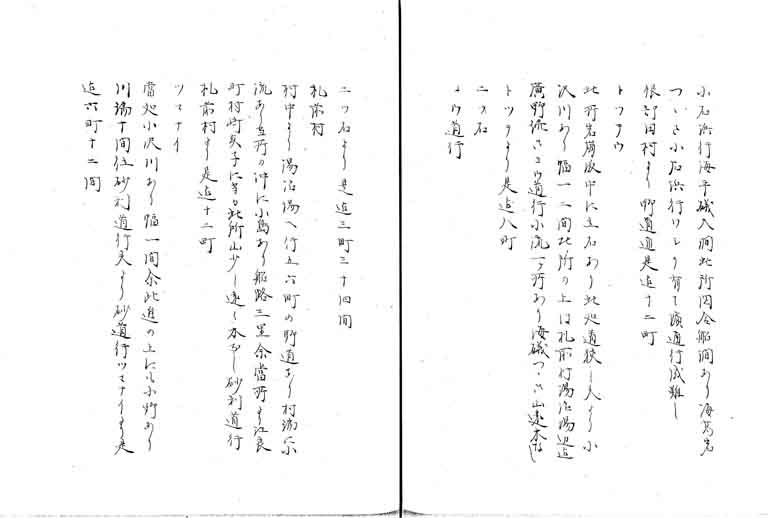 小石浜行海手磯入澗此所図合船澗あり海荒岩
つゝき小石浜行ワシリ有て浜通行成難し
根部田村より野道通是迄十二町
トツラウ
此所岩崩波中に立石あり此処道狭し夫より小
沢川あり幅一二間此所の上は札前村湯治場辺迄
広野続きユウ道行小流一ヶ所あり海磯つゝき山遠木なし
トツラウより是迄八町
二ツ石
ユウ道行
二ツ石より是迄三町三十四間
札前村
村中より湯治場へ行五六町の野道あり村端に小
流あり当所の沖に小島あり船路三里余当所より江良
町村崎矢子に当る此所山少し遠く木なし砂利道行
札前村より是迄十二町
ツマナイ
当処小沢川あり幅一間余此道の上にも小野あり
川端十間位砂利道行夫より砂道行ツマナイより是
迄六町十二間